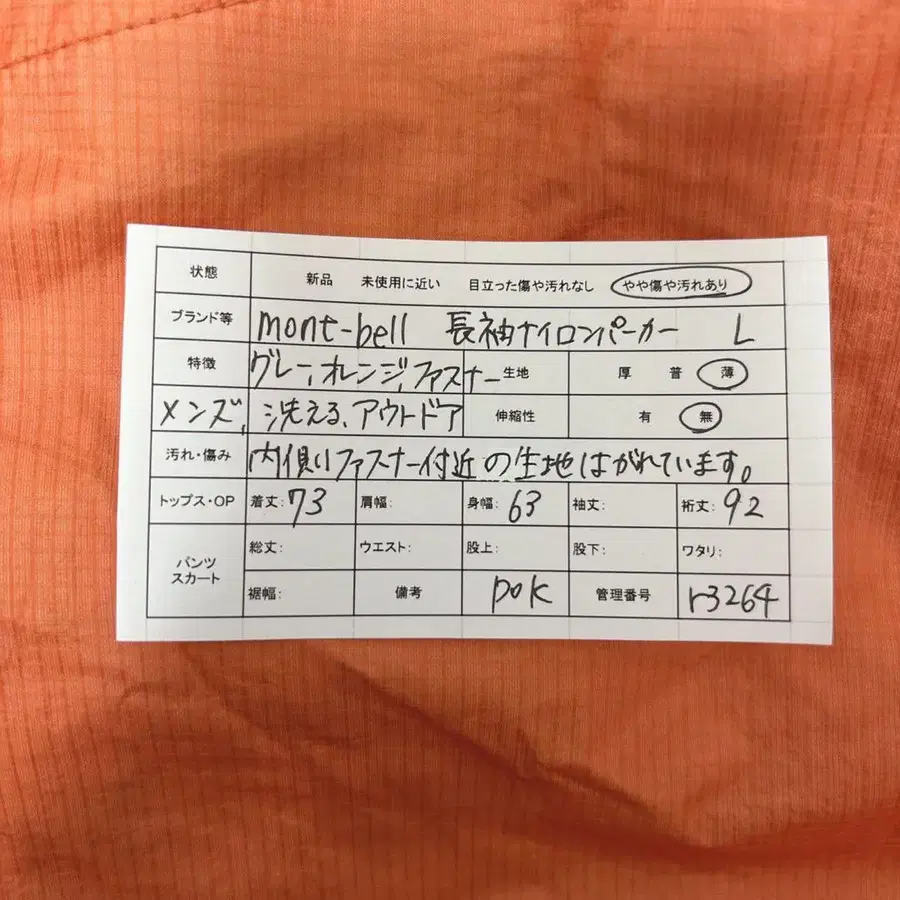 状態 新品 未使用に近い 目立った傷や汚れなし やや傷や汚れあり
ブランド等 mont-bell 長袖ナイロンパーカー L
特徴 グレー、オレンジ、ファスナー 生地 厚 普 薄
メンズ、洗える、アウトドア 伸縮性 有 無
汚れ・傷み 内側ファスナー付近の生地はがれています。
トップス・OP 着丈:73 肩幅: 身幅:63 袖丈: 裄丈:92
パンツ スカート 総丈: ウエスト: 股上: 股下: ワタリ:
裾幅: 備考 pok 管理番号 r3264